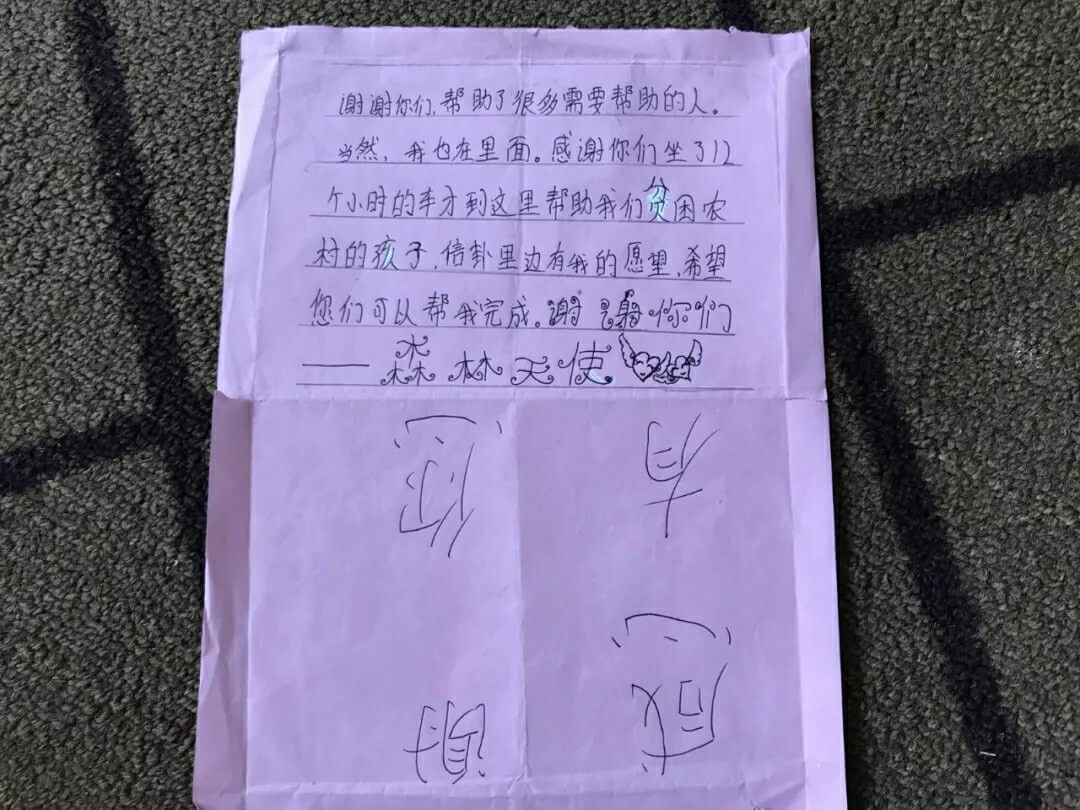 谢谢你们,帮助了很多需要帮助的人。
当然,我也在里面。感谢你们坐了12
个小时的车才到这里帮助我们贫困农
村的孩子,信卦里边有我的愿望,希望
您们可以帮我完成。谢謝你们
——森林天使
感谢
有您